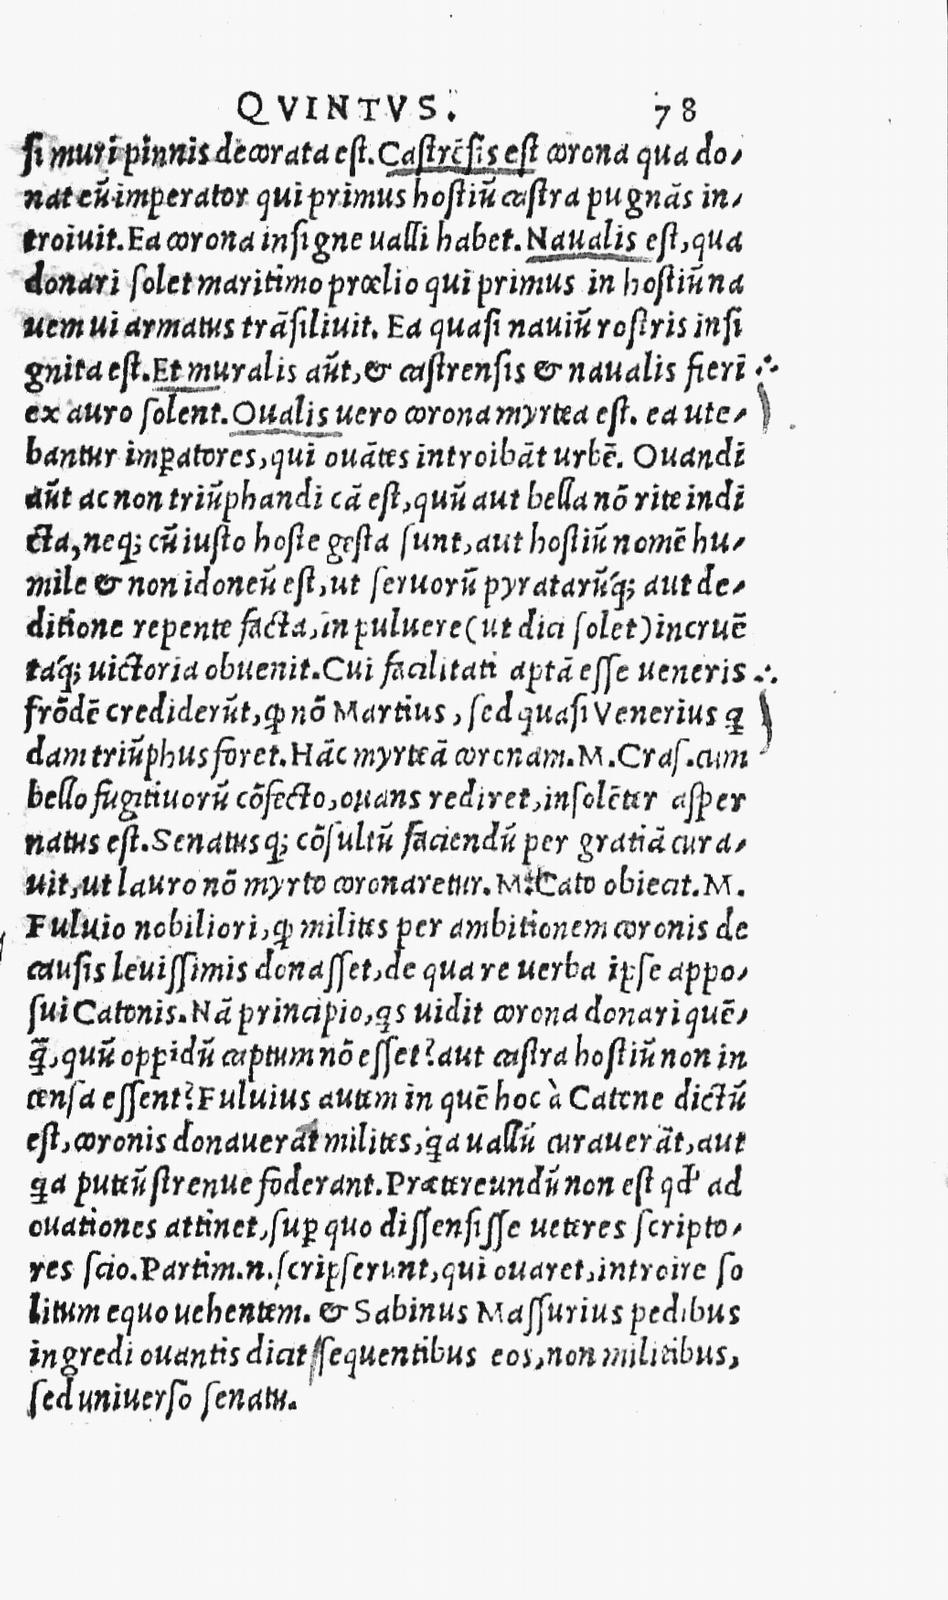 QVINTVS. 78
si muri pinnis decorata est. Castrēsis est corona qua do-
nat eū imperator qui primus hostiū castra pugnās in-
troiuit. Ea corona insigne ualli habet. Naualis est, qua
donari solet maritimo prœlio qui primus in hostiū na
uem ui armatus trāsiliuit. Ea quasi nauiū rostris insi
gnita est. Et muralis aūt, & castrensis & naualis fierī
ex auro solent. Oualis uero corona myrtea est. ea ute-
bantur imꝑatores, qui ouātes introibāt urbē. Ouandi
aūt ac non triūphandi cā est, quū aut bella nō rite indi
cta, neq; cū iusto hoste gesta sunt, aut hostiū nomē hu-
mile & non idoneū est, ut seruorū pyratarūq́; aut de-
ditione repente facta, in puluere (ut dici solet) incruē
taq́; uictoria obuenit. Cui facilitati aptā esse ueneris
frōdē crediderūt, ꝙ nō Martius, sed quasi Venerius q̄
dam triūphus foret. Hāc myrteā coronam. M. Cras. cum
bello fugitiuorū cōfecto, ouans rediret, insolēter asper
natus est. Senatusq; cōsultū faciendū per gratiā cura-
uit, ut lauro nō myrto coronaretur. M. Cato obiecit. M.
Fuluio nobiliori, ꝙ milites per ambitionem coronis de
causis leuissimis donasset, de qua re uerba ipse appo-
sui Catonis. Nā principio, q̄s uidit corona donari quē-
q̄̄, quū oppidū captum nō esset? aut castra hostiū non in
censa essent? Fuluius autem in quē hoc à Catone dictū
est, coronis donauerat milites, q̄a uallū curauerāt, aut
q̄a puteū strenue foderant. Prætereundū non est qđ ad
ouationes attinet, suꝑ quo dissensisse ueteres scripto-
res scio. Partim.n. scripserunt, qui ouaret, introire so
litum equo uehentem. & Sabinus Massurius pedibus
ingredi ouantis dicit sequentibus eos, non militibus,
sed uniuerso senatu.